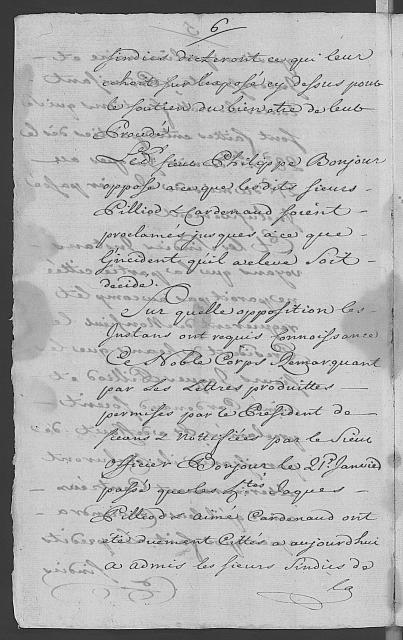 6
sindics dicteront ce qui leur
échoit sur l'exposé cy dessus pour
le soutien du bien être de leur
Le dt. sieur Philippe Bonjour
oppose a ce que lesdits sieurs
Pilliod & Cardenaud soient
proclamés jusques a ce que
l'incident qu'il a élevé soit
décidé.
Sur quelle opposition les
Instans ont requis Connoissance
Le Noble Corps Remarquant
par les Lettres produittes
permises par le Président de
céans & nottifiées par le Sieur
Officier Bonjour le 21e. Janvier
passé que les Jaques
Pilliod & aimé Cardenaud ont
été duement Cittés a aujourdhui
a admis les sieurs Sindics de
la